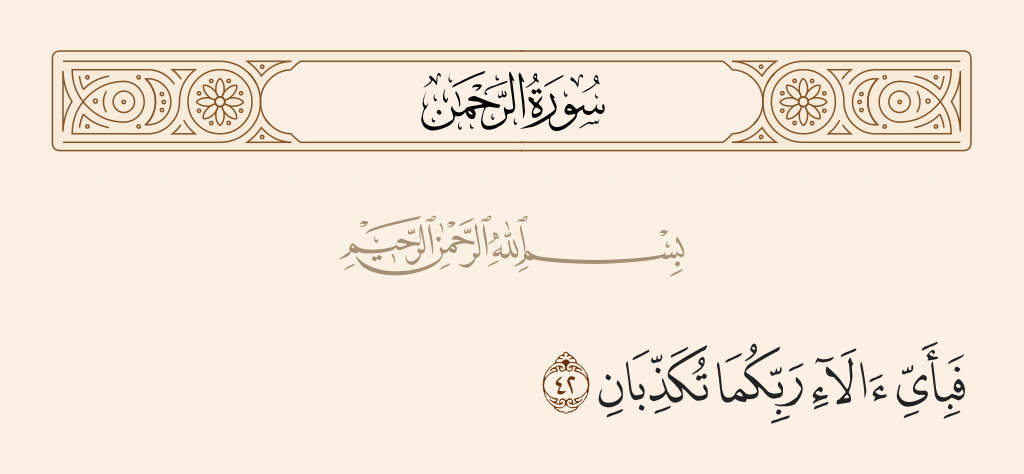 سُورَةُ الرَّحْمَٰن
بِسْمِ ٱللَّهِ ٱلرَّحْمَٰنِ ٱلرَّحِيمِ
فَبِأَىِّ ءَالَآءِ رَبِّكُمَا تُكَذِّبَانِ ٤٢